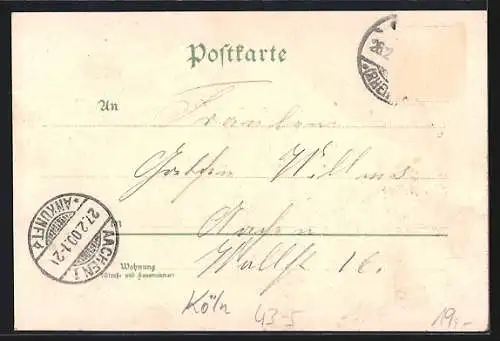 Postkarte
26.2
(RHEI
An
Fräulein
Willms
Aachen
in
Wallstr 16.
AACHEN 1
27.2.00.1-2N
*ANKUNFT*
Wohnung
(Straße und Hausnummer)
Köln
43-5
19,-